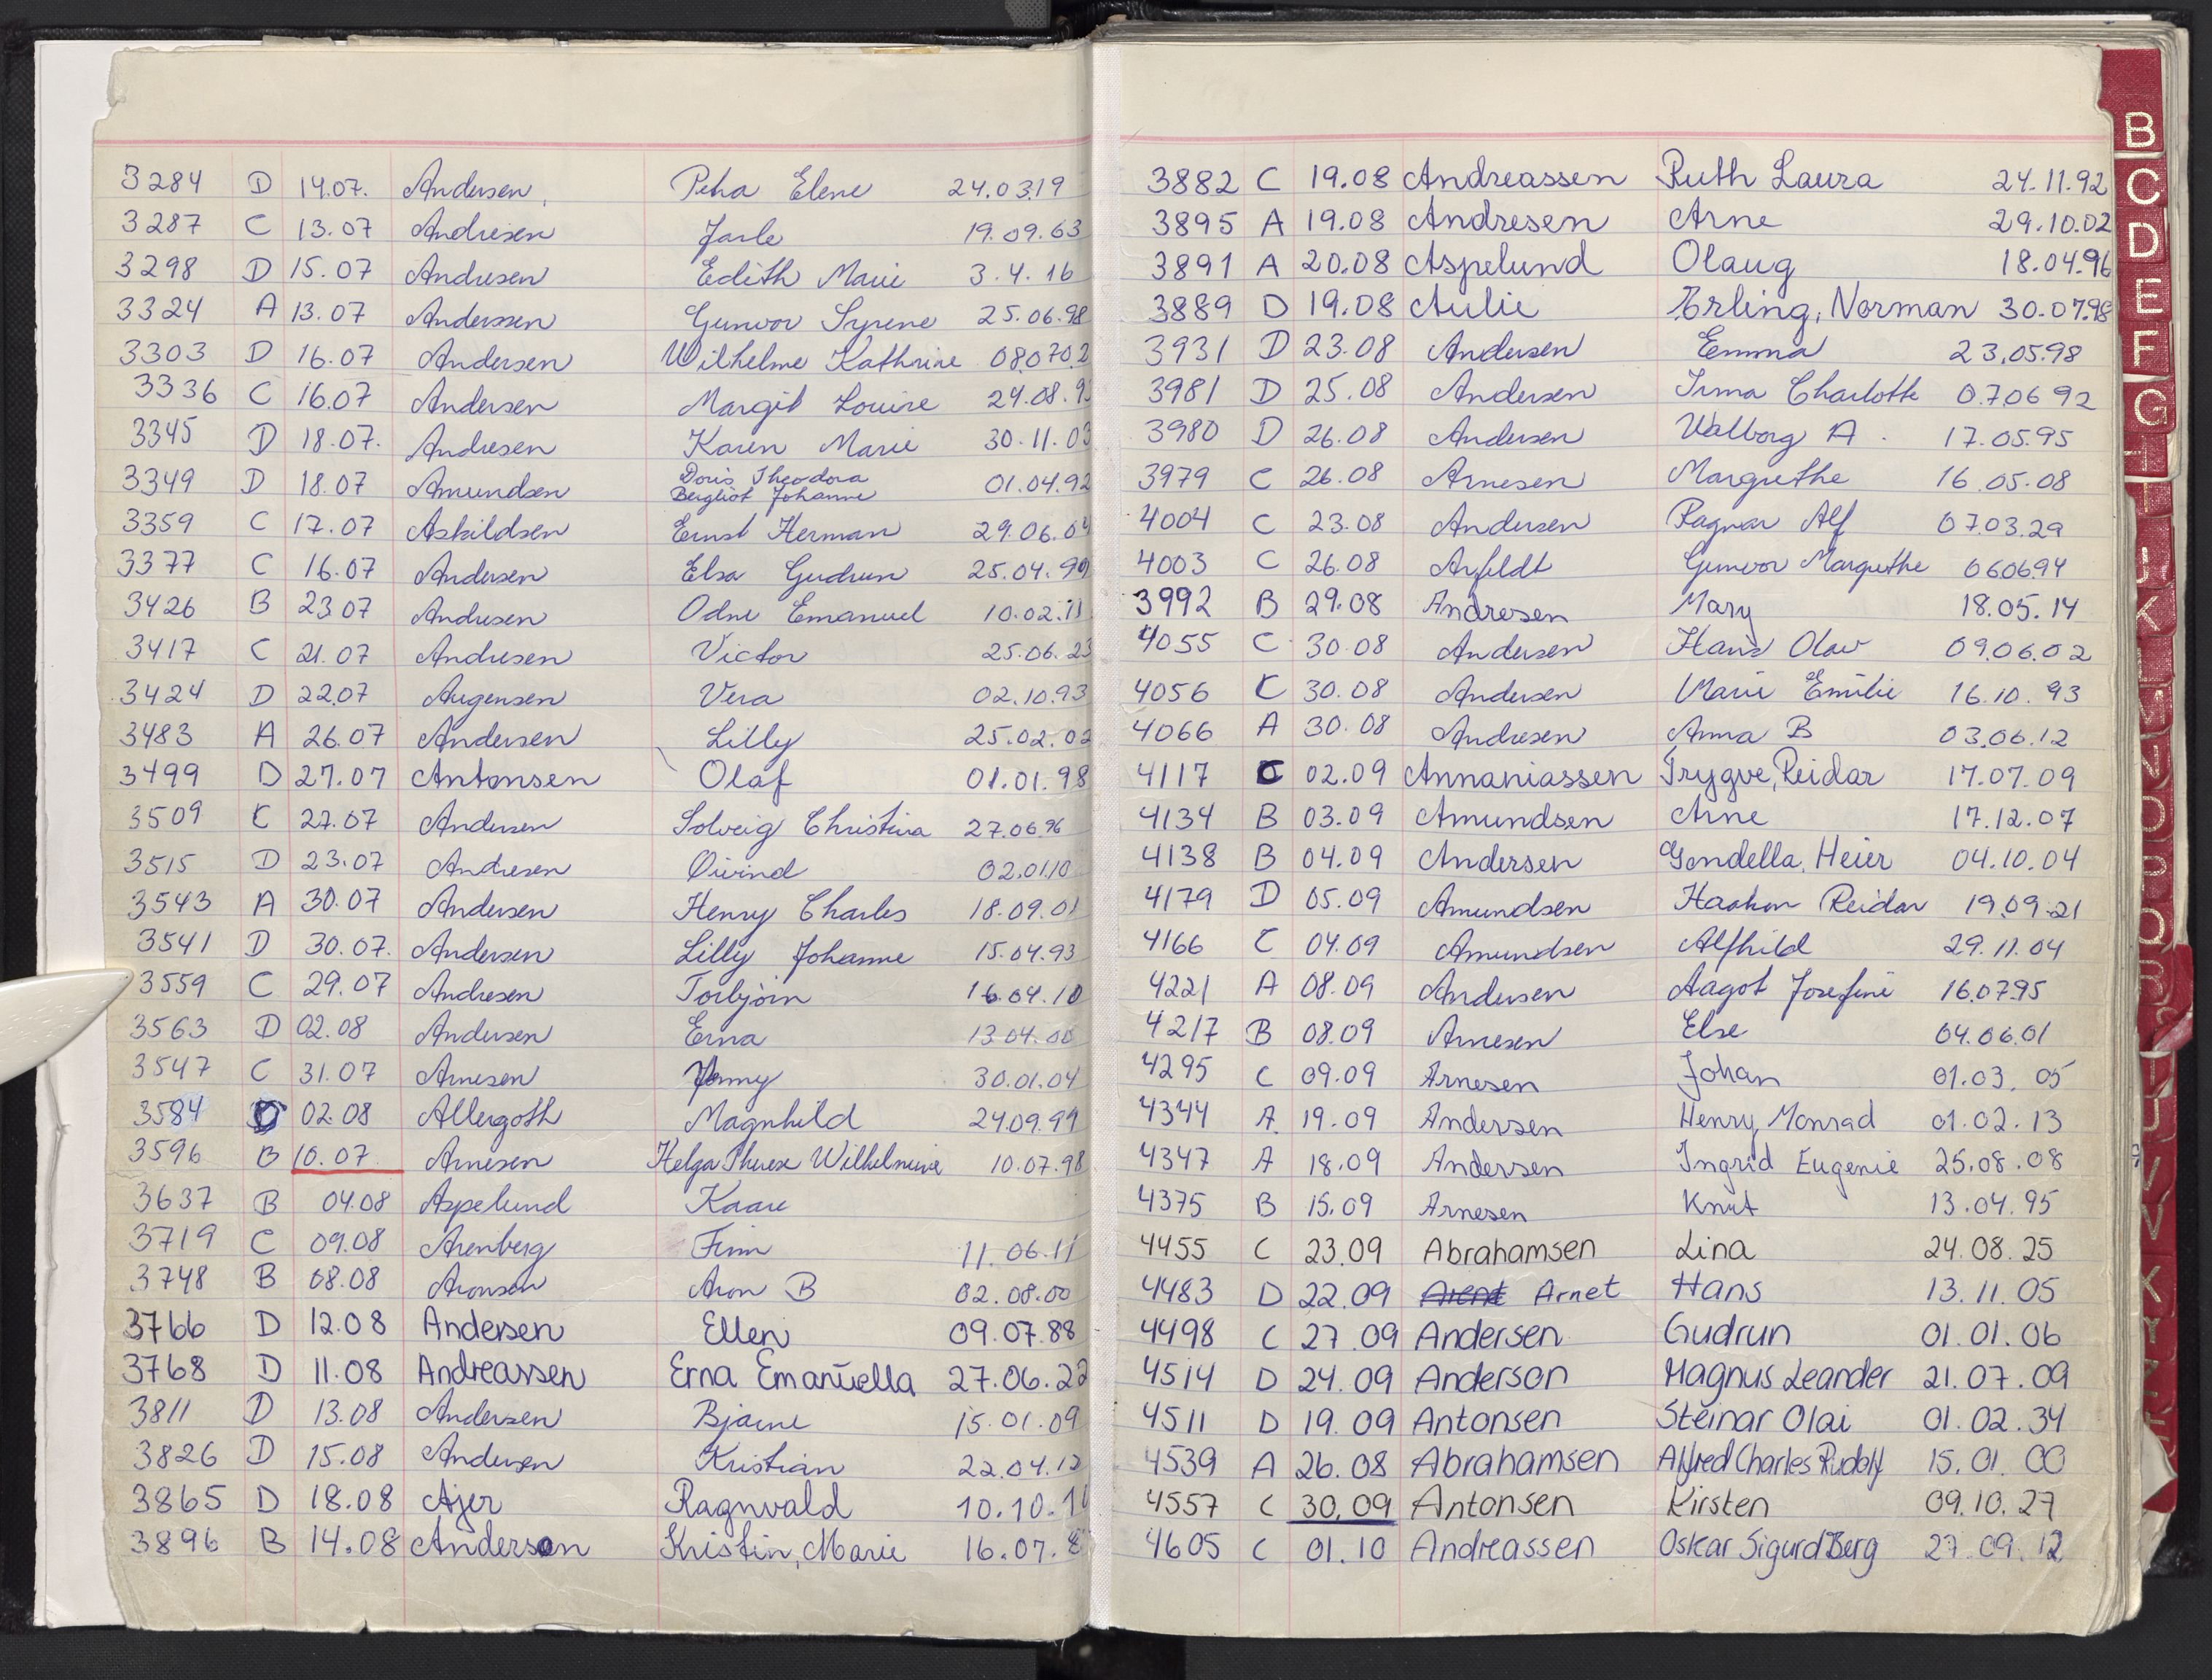 3284 D 14.07. Andersen, Petra Elene 24.03.19
3287 C 13.07 Andresen Jarle 19.09.63
3298 D 15.07 Andresen Edith Marie 3.4.16
3324 A 13.07 Anderssen Gunvor Syrene 25.06.98
3303 D 16.07 Andersen Wilhelme Kathrine 080702
3336 C 16.07 Andersen Margit Louise 24.08.9
3345 D 18.07. Andresen Karen Marie 30.11.03
3349 D 18.07 Amundsen Doris Theodora Bergliot Johanne 01.04.92
3359 C 17.07 Askildsen Ernst Herman 29.06.04
3377 C 16.07 Andersen Elsa Gudrun 25.04.99
3426 B 23 07 Andresen Odne Emanuel 10.02.11
3417 C 21.07 Andresen Victor 25.06.23
3424 D 22.07 Augensen Vera 02.10.93
3483 A 26.07 Andersen Lilly 25.02.02
3499 D 27.07 Antonsen Olaf 01.01.98
3509 C 27.07 Andersen Solveig Christina 27.06.96
3515 D 23.07 Andresen Øivind 02.01.10
3543 A 30.07 Andersen Henry Charles 18.09.01
3541 D 30.07. Andersen Lilly Johanne 15.04.93
3559 C 29.07 Andresen Torbjörn 16.04.10
3563 D 02.08 Andersen Erna 13.04.00
3547 C 31.07 Arnesen Jenny 30.01.04
3584 D 02.08 Allergoth Magnhild 24.09.99
3596 B 10.07 Arnesen Helga Therese Wilhelmine 10.07.98
3637 B 04.08 Aspelund Kaare
3719 C 09.08 Arenberg Finn 11.06.11
3748 B 08.08 Aronsen Aron B 02.08.00
3766 D 12.08 Andersen Ellen 09.07.88
3768 D 11.08 Andreassen Erna Emanuella 27.06.22
3811 D 13.08 Andersen Bjarne 15.01.09
3826 D 15.08 Andersen Kristian 22.04.12
3865 D 18.08 Ajer Ragnvald 10.10.1
3896 B 14.08 Anderson Kristin, Marie 16.07.8
3882 C 19.08 Andreassen Ruth Laura 24.11.92
3895 A 19.08 Andresen Arne 29.10.02
3891 A 20.08 Aspelund Olaug 18.04.96
3889 D 19.08 Aulie Erling, Norman 30.07.98
3931 D 23.08 Andersen Emma 23.05.98
3981 D 25.08 Andersen Irma Charlotte 07.06 92
3980 D 26.08 Andersen Valborg A. 17.05.95
3979 C 26.08 Arnesen Margrethe 16.05.08
4004 C 23.08 Andersen Ragnar Alf 07.03.29
4003 C 26.08 Arfeldt Gunvor Margrethe 060694
3992 B 29.08 Andresen Mary 18.05.14
4055 C 30.08 Andersen Hans Olav 09.06.02
4056 C 30.08 Andersen Marie Emilie 16.10.93
4066 A 30.08 Andresen Anna B 03.06.12
4117 C 02.09 Annaniassen Trygve, Reidar 17.07.09
4134 B 03.09 Amundsen Arne 17.12.07
4138 B 04.09 Andersen Gondella, Heier 04.10.04
4179 D 05.09 Amundsen Haakon Reidar 19.09.21
4166 C 04.09 Amundsen Alfhild 29.11.04
4221 A 08.09 Andersen Aagot Josefine 16.07.95
4217 B 08.09 Arnesen Else 04.06.01
4295 C 09.09 Arnesen Johan 01.03.05
4344 A 19.09 Andersen Henry, Monrad 01.02.13
4347 A 18.09 Andersen Ingrid Eugenie 25.08.08
4375 B 15.09 Arnesen Knut 13.04.95
4455 C 23.09 Abrahamsen Lina 24.08.25
4483 D 22.09 Arnet Hans 13.11.05
4498 C 27.09 Andersen Gudrun 01.01.06
4514 D 24.09 Anderson Magnus Leander 21.07.09
4511 D 19.09 Antonsen Steinar Olai 01.02.34
4539 A 26.08 Abrahamsen Alfred Charles Rudolf 15.01.00
4557 C 30.09 Antonsen Kirsten 09.10.27
4605 C 01.10 Andreassen Oskar Sigurd Berg 27.09.12
B
C
D
E
F
G